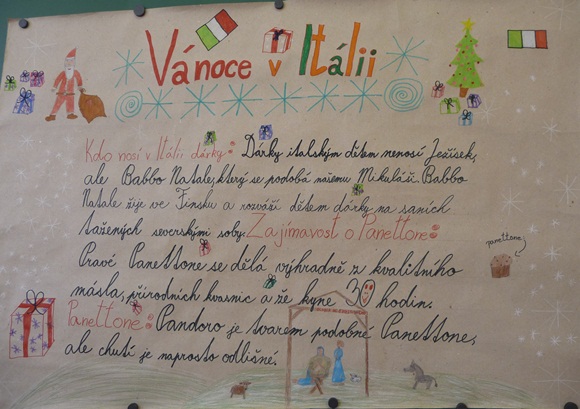 Vánoce v Itálii
Kdo nosí v Itálii dárky: Dárky italským dětem nenosí Ježíšek,
ale Babbo Natale, který se podobá našemu Mikuláši. Babbo
Natale žije ve Finsku a rozváží dětem dárky na saních
tažených severskými soby. Zajímavost o Panettone:
Pravé Panettone se dělá výhradně z kvalitního
másla, přírodních kvasnic a že kyne 30 hodin.
Panettone: Pandoro je tvarem podobné Panettone,
ale chutí je naprosto odlišné.
panettone